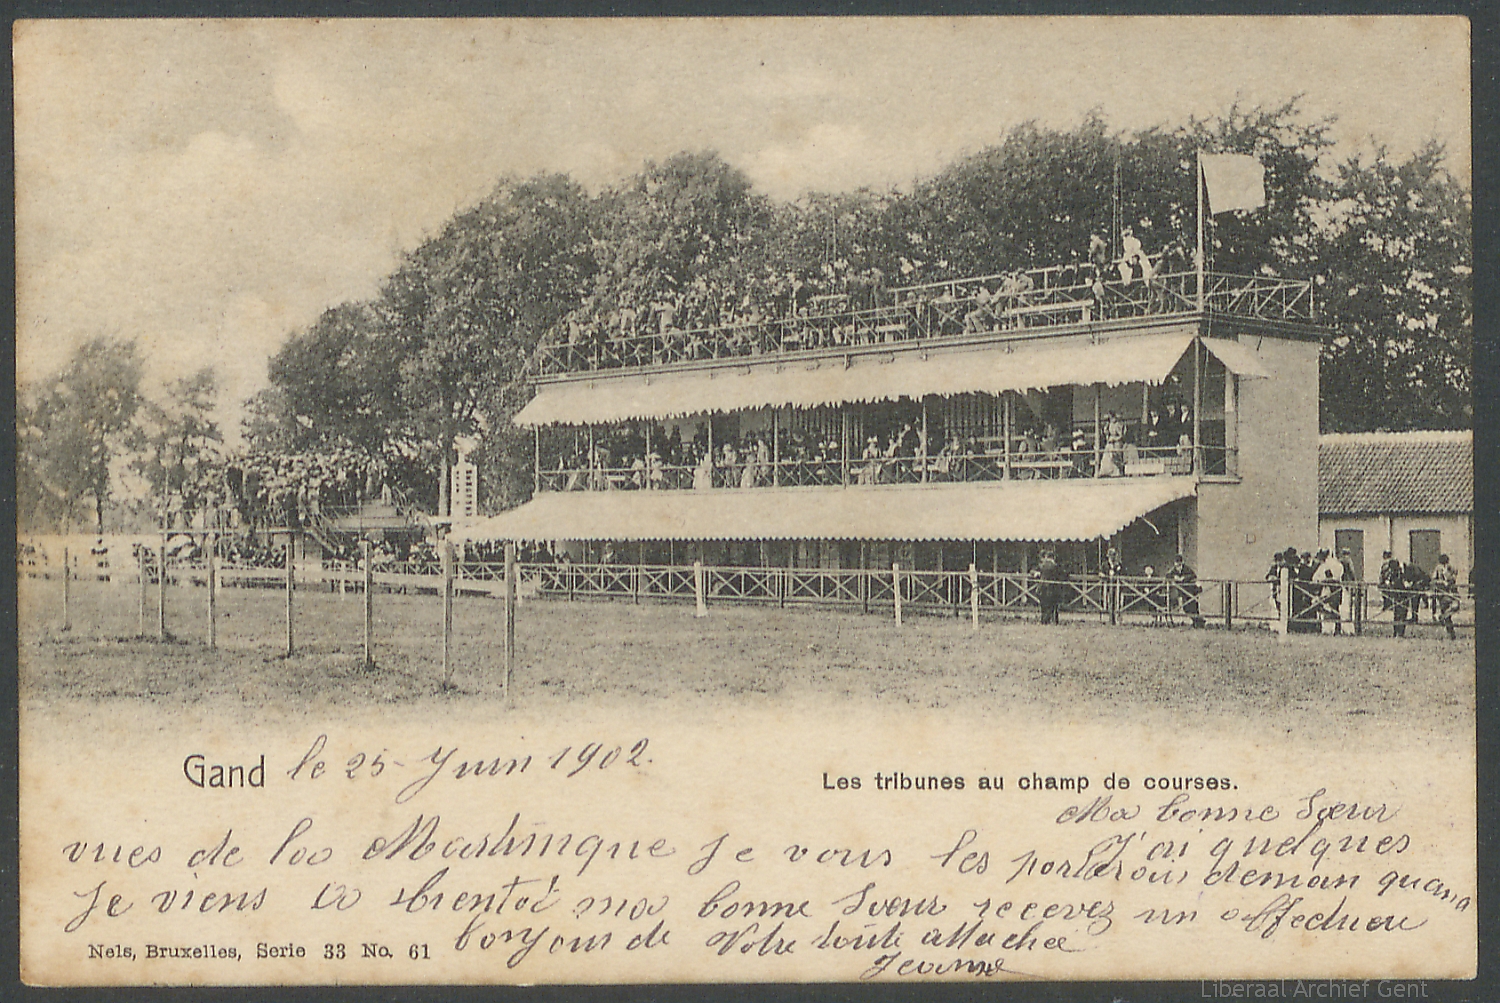 Gand le 25 Juin 1902.
Les tribunes au champ de courses.
Ma bonne Sœur
J'ai quelques
vues de la Martinique je vous les porterais demain quand
je viens a bientôt ma bonne Sœur recevez un affectueu
bonjour de Votre toute attachée
Jeanne
Nels, Bruxelles, Serie 33 No. 61
Liberaal Archief Gent